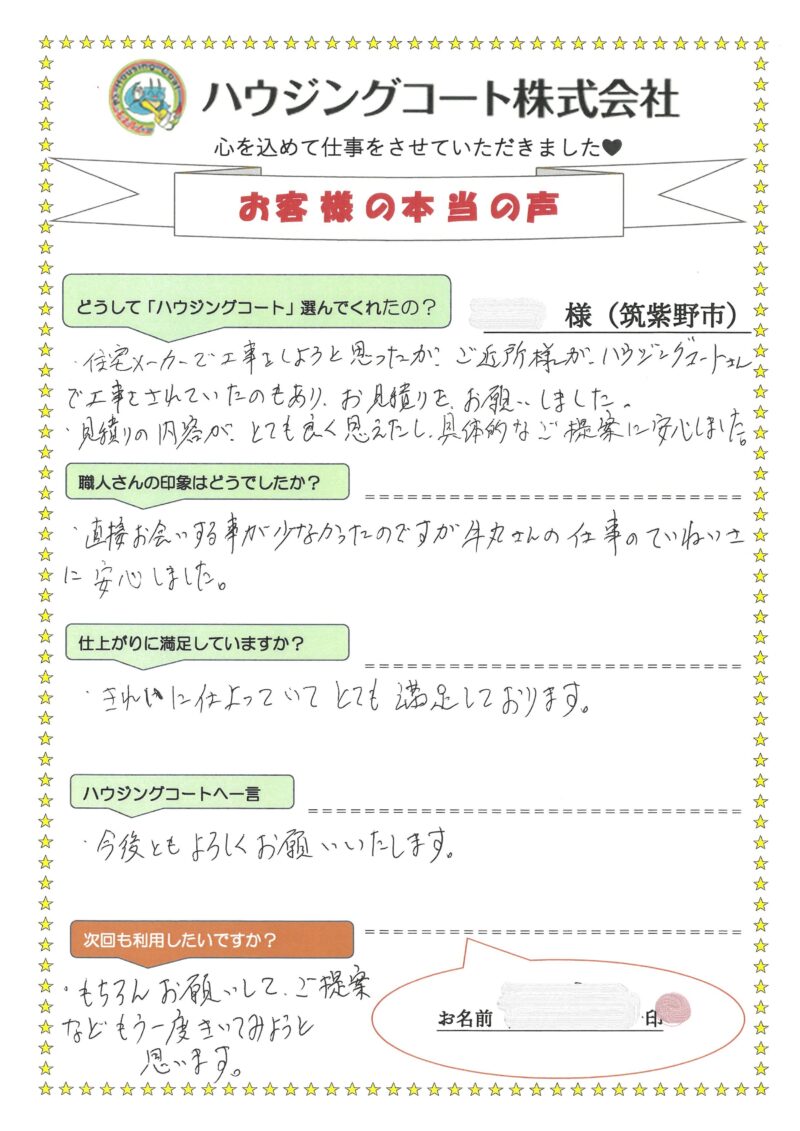 Housing Coat
ハウジングコート株式会社
心を込めて仕事をさせていただきました♥
お客様の本当の声
どうして「ハウジングコート」選んでくれたの？
様（筑紫野市）
・住宅メーカーで工事をしようと思ったが、ご近所様が、ハウジングコートさん
で工事をされていたのもあり、お見積りを、お願いしました。
・見積りの内容が、とても良く思えたし、具体的なご提案に安心しました。
職人さんの印象はどうでしたか？
・直接お会いする事が少なかったのですが牛丸さんの仕事のていねいさ
に安心しました。
仕上がりに満足していますか？
・きれいに仕上っていてとても満足しております。
ハウジングコートへ一言
・今後ともよろしくお願いいたします。
次回も利用したいですか？
・もちろんお願いして、ご提案
などもう一度きいてみようと
思います。
お名前 印